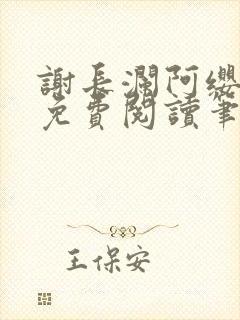 謝長瀾阿纓
免費閱讀筆
王保安